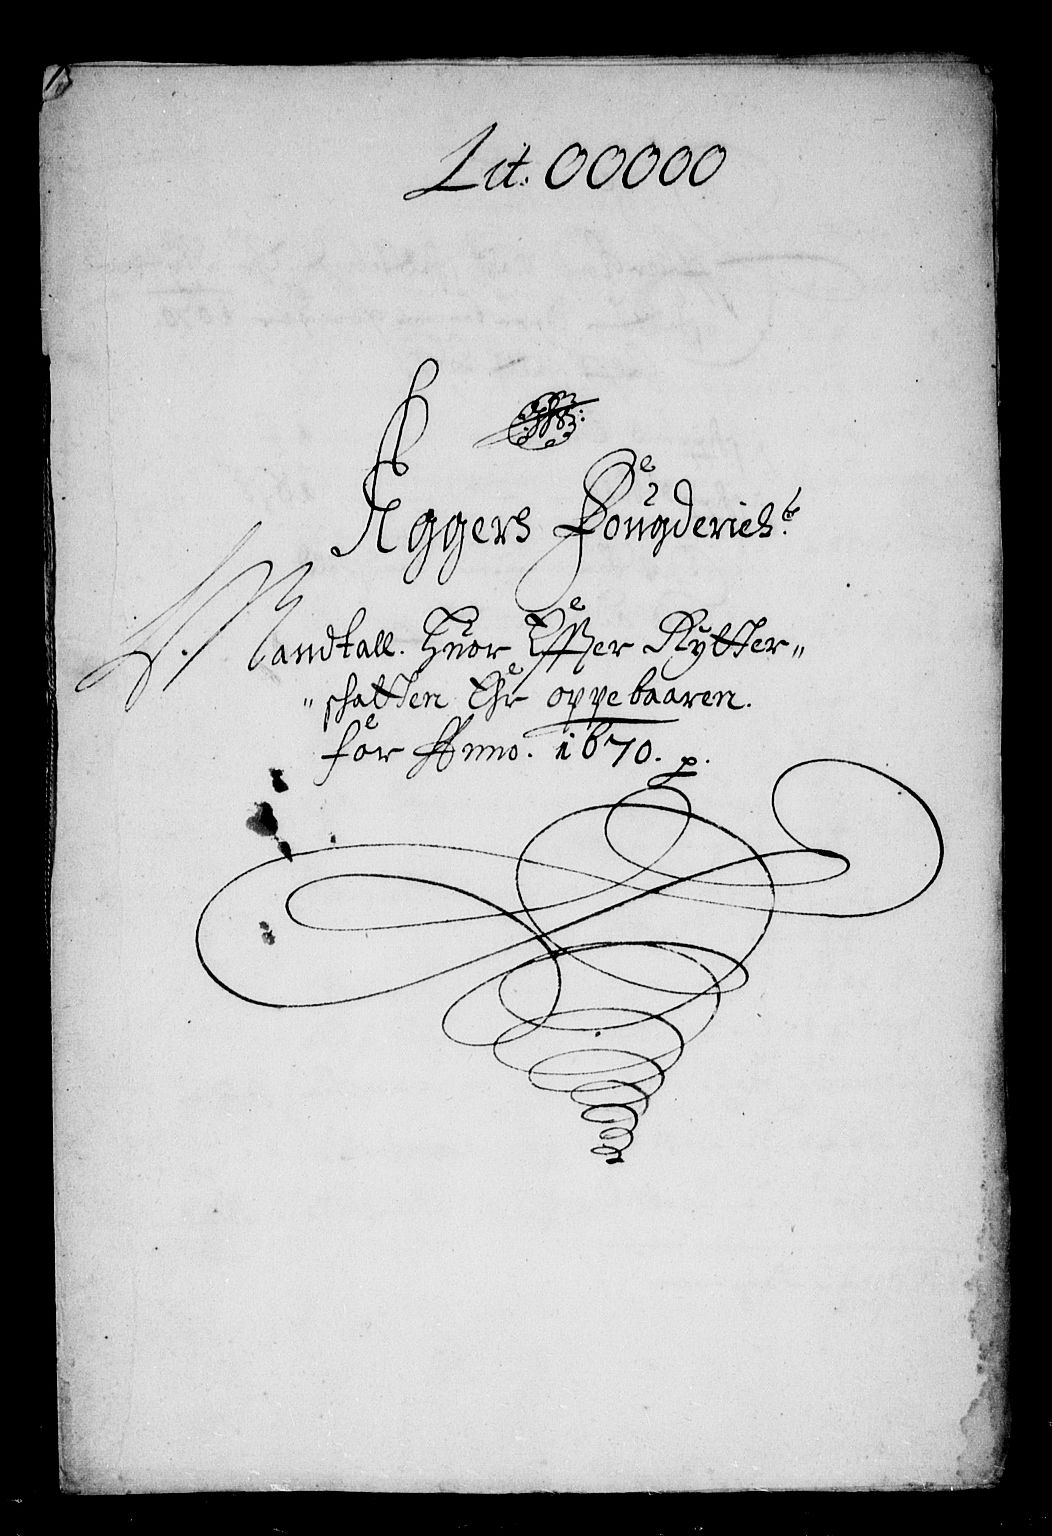 Lit: OOOOO
Aggers Fougderiets
Mandtall. Huor Effter Rytter„
„schatten Ehr oppebaaren.
for Anno. 1670. p.